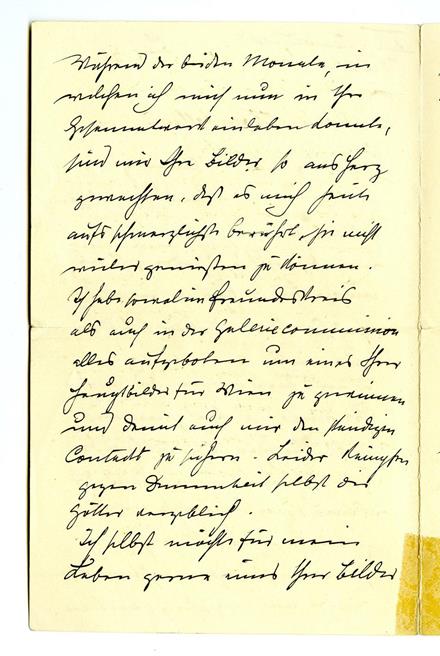 Während der beiden Monate, in
welchen ich mich nun in Ihr
Gesamtwerk einleben konnte,
sind mir Ihre Bilder so ans Herz
gewachsen, daß es mich heute
aufs schmerzlichste berührt, sie nicht
wieder geniessen zu können.
Ich habe sowol im Freundeskreis
als auch in der Galeriecommission
alles aufgeboten um eines Ihrer
Hauptbilder für Wien zu gewinnen
und damit auch mir den ständigen
Contact zu sichern. Leider kämpfen
gegen Dummheit selbst die
Götter vergeblich.
Ich selbst möchte für mein
Leben gerne eins Ihrer Bilder